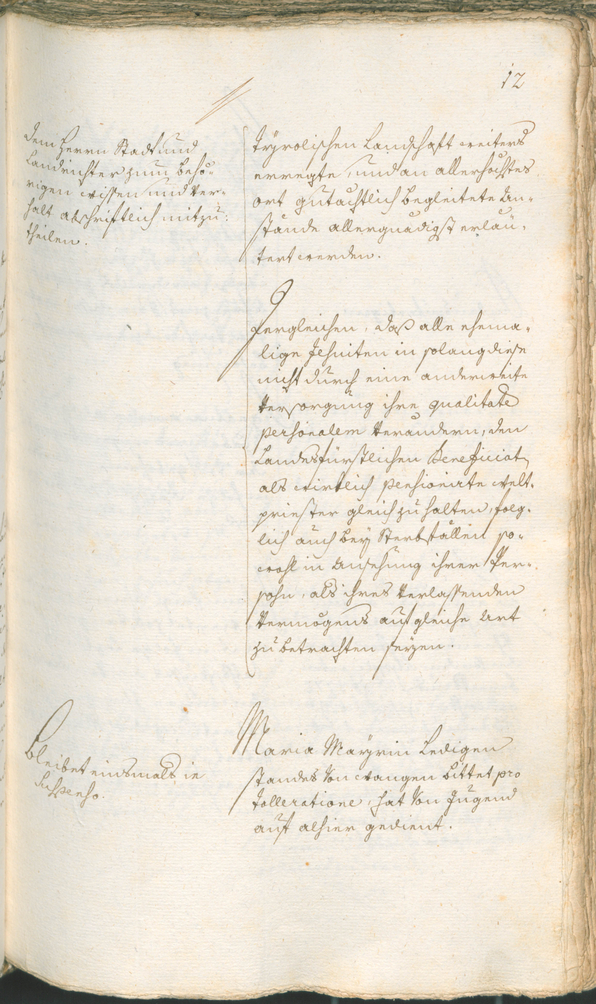 12
dem Herrn Stadt und
Landrichter zum behö-
rigen wissen und ver-
halt abschriftlich mitzu-
theilen.
Tÿrolischen Landschaft weiters
erregte, und an allerhöchstes
ort gutächtlich begleitete An-
stände allergnädigst erläu-
tert werden.
Jtergleichen, daß alle ehema-
lige Jesuiten in solang diese
nicht durch eine anderweite
Versorgung ihre qualitate
personalem verändern, den
Landesfürstlichen Beneficiat
als wirklich pensionirte Welt-
priester gleich zu halten, folg-
lich auch beÿ Sterbfällen so-
wohl in Ansehung ihrer Per-
sohn, als ihres verlassenden
Vermögens auf gleiche Art
zu betrachten seÿen.
Bleibet einsmals in
suspenso.
Maria Maÿrin Ledigen
standes von Wangen bittet pro
Tolleratione, hat von Jugend
auf alhier gedient.